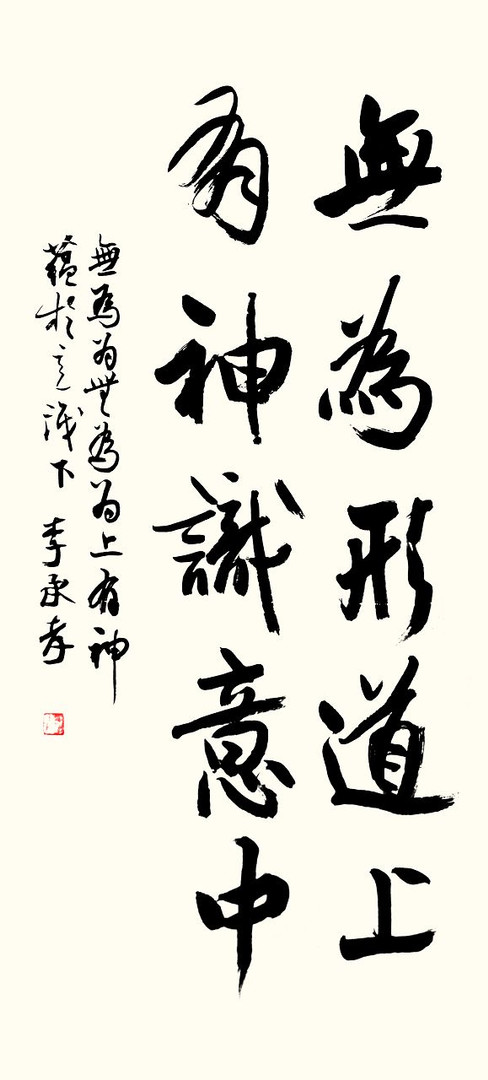 無為形道上
有神識意中
無為為無為為上有神
蘊於意識下 李承孝